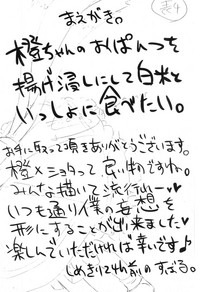 まえがき。
橙ちゃんのおぱんつを
揚げ浸しにして白米と
いっしょに食べたい。
お手に取って頂きありがとうございます。
橙×ショタって良い物ですわね。
みんな描いて流行れー♥
いつも通り僕の妄想を
形にすることが出来ました♥
楽しんでいただければ幸いです♪
しめきり
前のすずる。